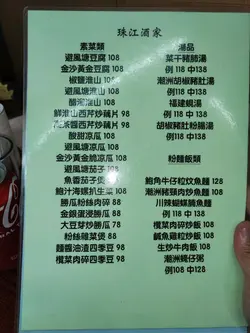 珠江酒家
素菜類
避風塘豆腐 108
金沙黃金豆腐 108
椒鹽淮山 108
避風塘淮山 108
醋溜淮山 108
鮮淮山西芹炒藕片 98
西芹炒藕片 98
酸甜涼瓜 88
避風塘涼瓜
金沙黃金脆涼瓜 88
避風塘茄子 108
魚香茄子煲 98
鮑汁海螺扒生菜 108
勝瓜粉絲肉碎 88
金銀蛋浸勝瓜 88
大豆芽炒勝瓜 88
粉絲雜菜煲 88
麵醬油渣四季豆 98
欖菜肉碎四季豆 98
湯品
菜干豬肺湯
例 118 中138
潮洲胡椒豬肚湯
例 118 中138
福建蜆湯
例 118 中138
胡椒豬肚粉腸湯
例 118 中138
粉麵飯類
鮑角牛仔粒炆魚麵
潮洲豬頸肉炒魚麵 108
川辣蝴蝶腩魚麵
例 118 中138
欖菜肉碎炒飯 108
鹹魚雞粒炒飯 108
生炒牛肉飯 108
潮洲蠔仔粥
例108 中128